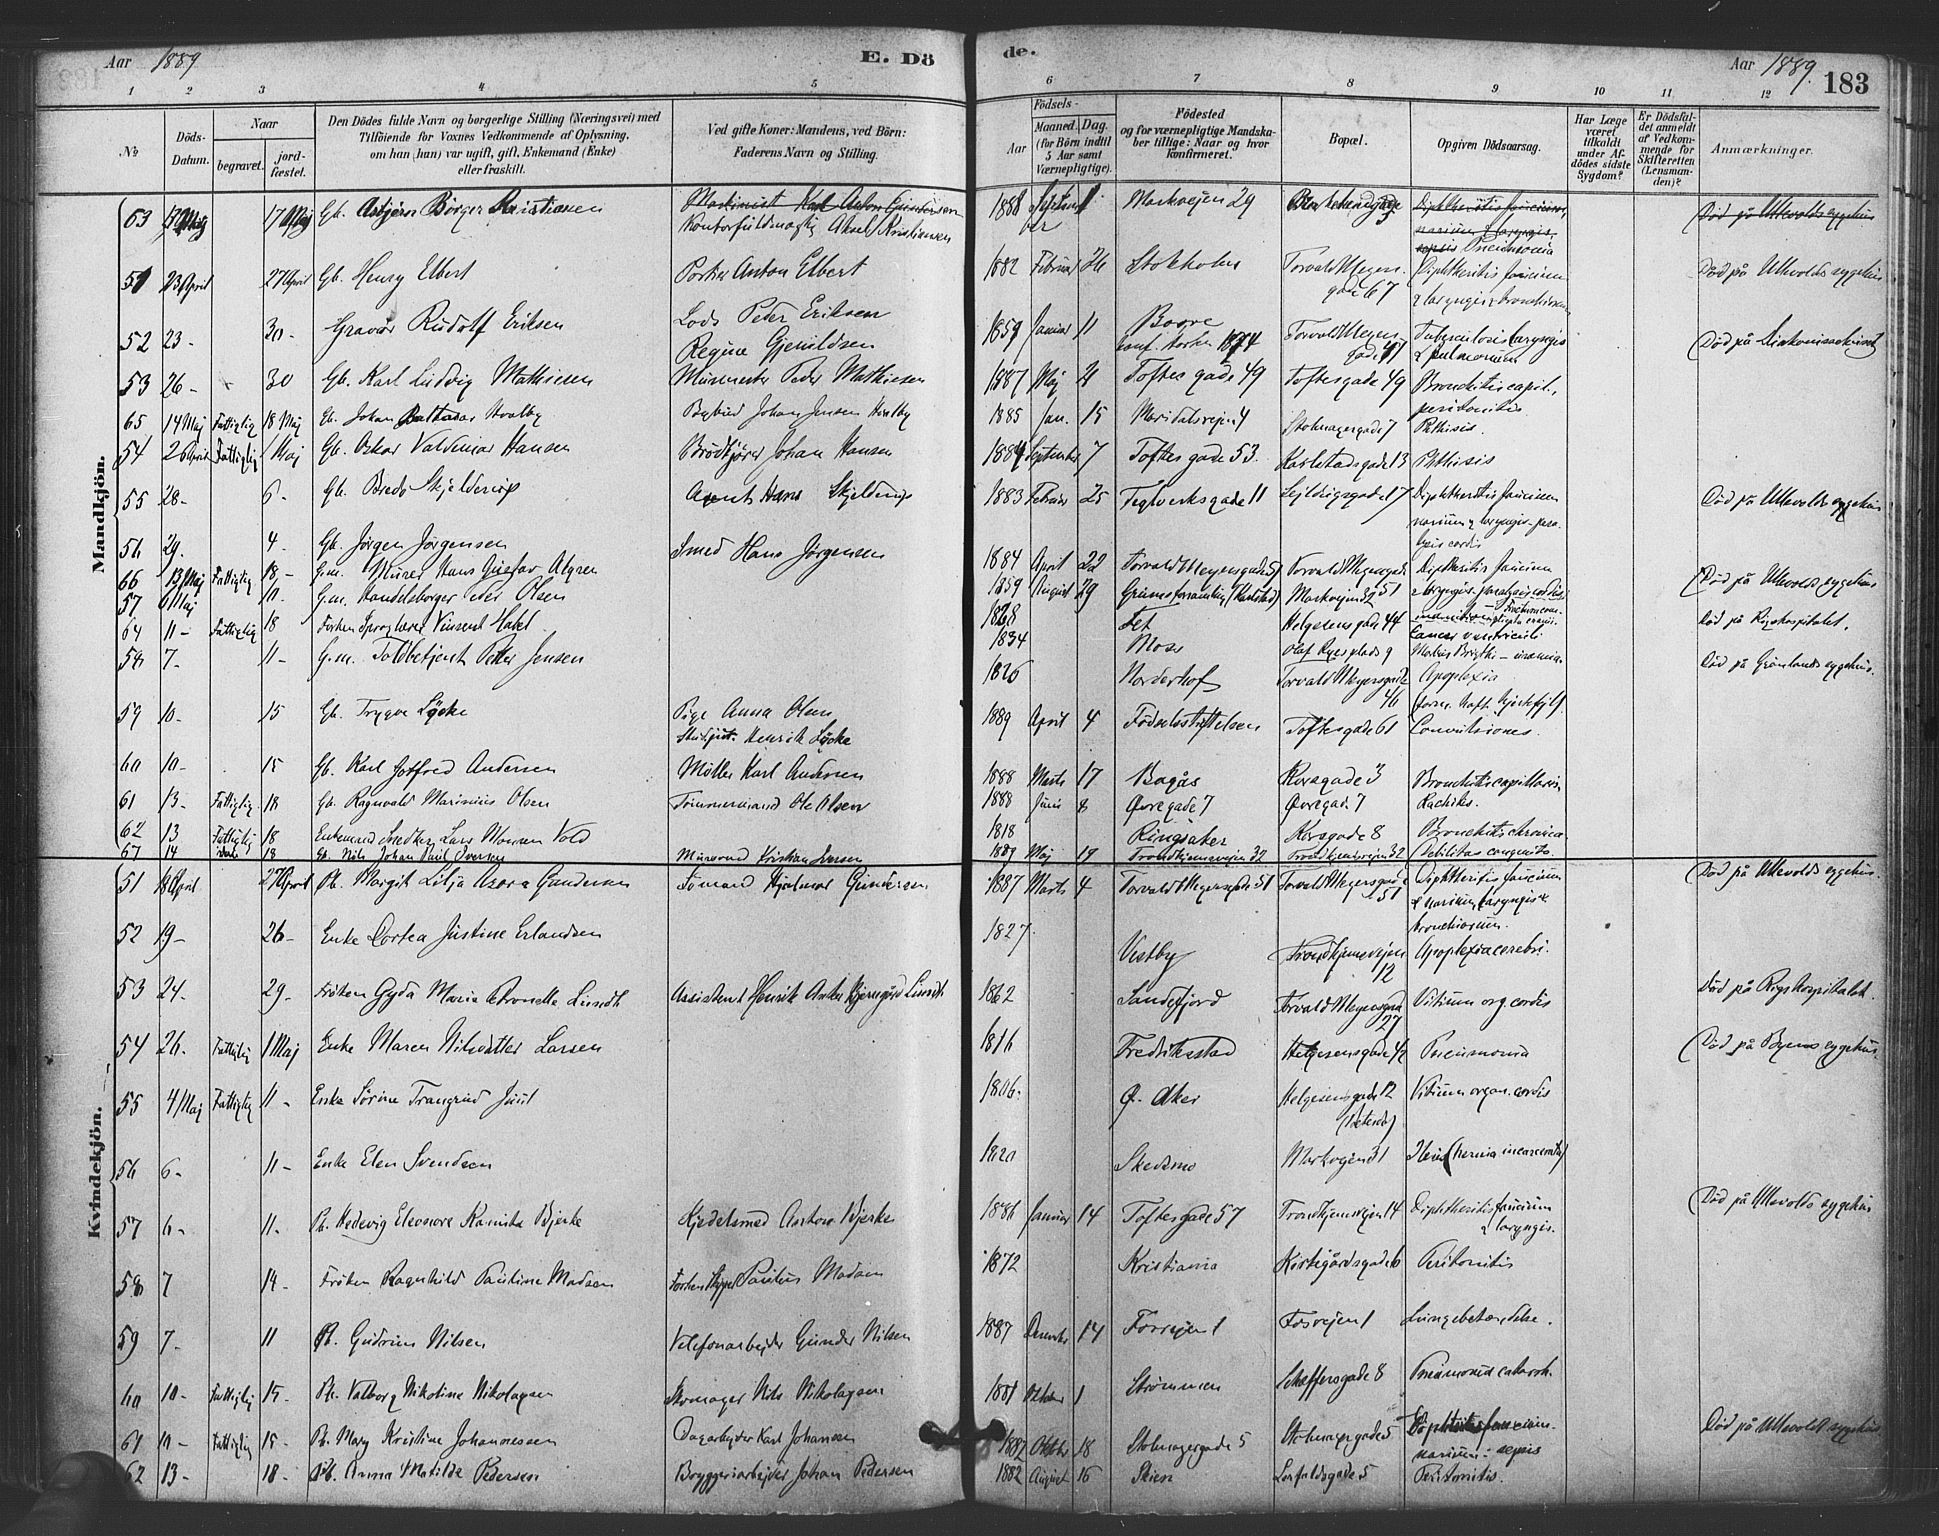 Aar 1889 E. Dö
de. Aar 1889. 183
1 2 3 4 5 6 7 8 9 10 11 12
No
Döds-Datum.
Naar
begravet. jordfæstet.
Den Dödes fulde Navn og borgerlige Stilling (Næringsvei) med
Tilföiende for Voxnes Vedkommende af Oplysning,
om han (hun) var ugift, gift, Enkemand (Enke)
eller fraskilt.
Ved gifte Koner: Mandens, ved Börn:
Faderens Navn og Stilling.
Födsels-
Aar Maaned. Dag.
(for Börn indtil
5 Aar samt
Værnepligtige).
Födested
og for værnepligtige Mandska-
ber tillige: Naar og hvor
konfirmeret.
Bopæl.
Opgiven Dödsaarsag.
Har Læge
været
tilkaldt
under Af-
dödes sidste
Sygdom?
Er Dödsfal-
det anmeldt
af Vedkom-
mende for
Skifteretten
(Lensman-
den)?
Anmærkninger.
Mandkjön.
63 17 Maj Gb. Asbjörn Börger Kristiansen Kontorfuldmægtig Aksel Kristiansen 1888 Markvejen 29 Pneumonia
51 23 April 27 April Gb. Henry Elbert Portier Anton Elbert 1882 Februar 26 Stokholm Torvald Meyers gade 67 Diphtheritis faucium & laryngis & bronchiorum (Död på Ullevolds sygehus
52 23 - 30 - Gravör Rudolf Eriksen Lods Peder Eriksen Regine 1857 Januar 11 Torvald Meyers gade Tuberculosis laryngis & pulmonum
53 26 - 30 Gb. Karl Ludvig Mathiesen Murmester Peder Mathiesen 1887 Maj Toftes gade 49 Toftesgade 49 Bronchitis capil., peritonitis.
65 14 Maj Fattiglig 18 Maj Gb. Johan Baltasar Hvalby Bybud Johan Jensen Hvalby 1885 Jan. 15 Maridalsvejen 4 Stolmagergade 7 Phthisis.
54 26 April Fattiglig 1 Maj Gb. Oskar Valdemar Hansen Brödkjörer Johan Hansen 1884 September 7 Toftes gade 53. Karlstadsgade 13 Phthisis
55 28 - 6 - Gb. Bredo Skjelderup Agent Hans Skjelderup 1883 Februar 25 Teglverksgade 11 Sejldugsgade 17 Diphtheritis faucium narium & laryngis (Död på Ullevolds sygehus
56 29. 4 - Gb. Jörgen Jörgensen Smed Hans Jörgensen 1884 April 22 Torvald Meyersgade Torvald Meyersgade 51 Diphtheritis faucium & laryngis (Död på Ullevolds sygehus
66 13 Maj Fattiglig 18 - G.m. Murer Hans Gustav Algren 1859 August 29 Markvejen 32 (Död på Rigshospitalet.
57 6 Maj 10 - G.m. Handelsborger Peder Olsen 1828 Fet Helgesensgade 44 Cancer ventriculi
64 11 - Fattiglig 18 Vincent Habel 1834 Moss Olaf Ryes plads 9 Död på Grönlands sygehus.
58 7 - 11 - G.m. Toldbetjent Petter Jensen 1826 Norderhof Torvald Meyersgade 46 Apoplexia
59 10 - 15 Gb. Trygve Lÿcke Pige Anna Olsen Henrik Lÿcke 1889 April 4 Födselsstiftelsen Toftesgade 61 Convulsiones.
60 10 - 15 Gb. Karl Gotfred Andersen Möller Karl Andersen 1888 Marts 17 Bagås Korsgade 3 Bronchitis capillaris.
61 13 - Fattiglig 18 Gb. Ragnvald Marinius Olsen Tömmermand Ole Olsen 1888 Juni 8 Övregade 7 Övregad. 7 Rachitis.
62 13 Fattiglig 18 Enkemand Snedker Lars Monsen Vold 1818 Ringsaker Korsgade 8 Bronchitis chronica
67 14 18 Gb. Nils Johan Paul Iversen Murersvend Kristian Iversen 1889 Maj 14 Trondhjemsvejen 32 Trondhjemsvejen 32 Debilitas congenita.
Kvindekjön.
51 18 April 27 April Pb. Margit Lilja Asora Gundersen Hjalmar Gundersen 1887 Marts 4 Torvald Meyersgade 51 Torvald Meyersgade 51 Diphtheritis faucium & narium, laryngis & bronchiorum. (Död på Ullevolds sygehus.
52 19 - 26 - Enke Dortea Justine Erlandsen 1827 Vestby Trondhjemsvejen 12 Apoplexia cerebri.
53 24. 29. Fröken Gyda Maria Petronella Lundh Assistent Henrik Anker Bjerregård Lundh 1862 Sandefjord Torvald Meyersgade 27 Vitium org. cordis Död på Rigshospitalet.
54 26. Fattiglig 1 Maj Enke Maren Nilsdatter Larsen 1816 Fredriksstad Helgesensgade 42 Pneumonia (Död på Byens sygehus.
55 4 Maj Fattiglig 11 - Enke Sörine Trangrud Juul 1806. Ö. Aker Helgesensgade 12 Vitium organ. cordis
56 6 - 11 - Enke Elen Svendsen 1820 Skedsmo Markvejen 31 Ileus (hernia incarcerata)
57 6 - 11 - Pb. Hedevig Eleonore Kamilla Bjerke Kjedelsmed Anton Bjerke 1886 Januar 14 Toftesgade 57 Trondhjemsvejen 14 Diphtheritis faucium & laryngis. (Död på Ullevolds sygehus
58 7 14 - Fröken Ragnhild Pauline Madsen Paulus Madsen 1872 Kristiania Kirkegårdsgade 6 Peritonitis
59 7 - 11 Pb. Gudrun Nilsen Telefonarbejder Gunder Nilsen 1887 Decembr 14 Fosvejen 1 Fosvejen 1 Lungebetændelse.
60 10 - Fattiglig 15 - Pb. Valborg Nikoline Nikolaysen Skomager Nils Nikolaysen 1881 Oktober 1 Strömmen Schæffersgade 8 Pneumonia catarrh.
61 10 - Fattiglig 15 - Pb. Mary Kristine Johannessen Dagarbejder Karl Johansen 1882 Oktbr 18 Stolmagergade 5 Stolmagergade 5 narium - sepsis Död på Ullevolds sygehus
62 13 - 18 - Pb. Anna Matilde Pedersen Bryggeriarbejder Johan Pedersen 1882 August 16 Skien Lerfaldsgade 5 Peritonitis.